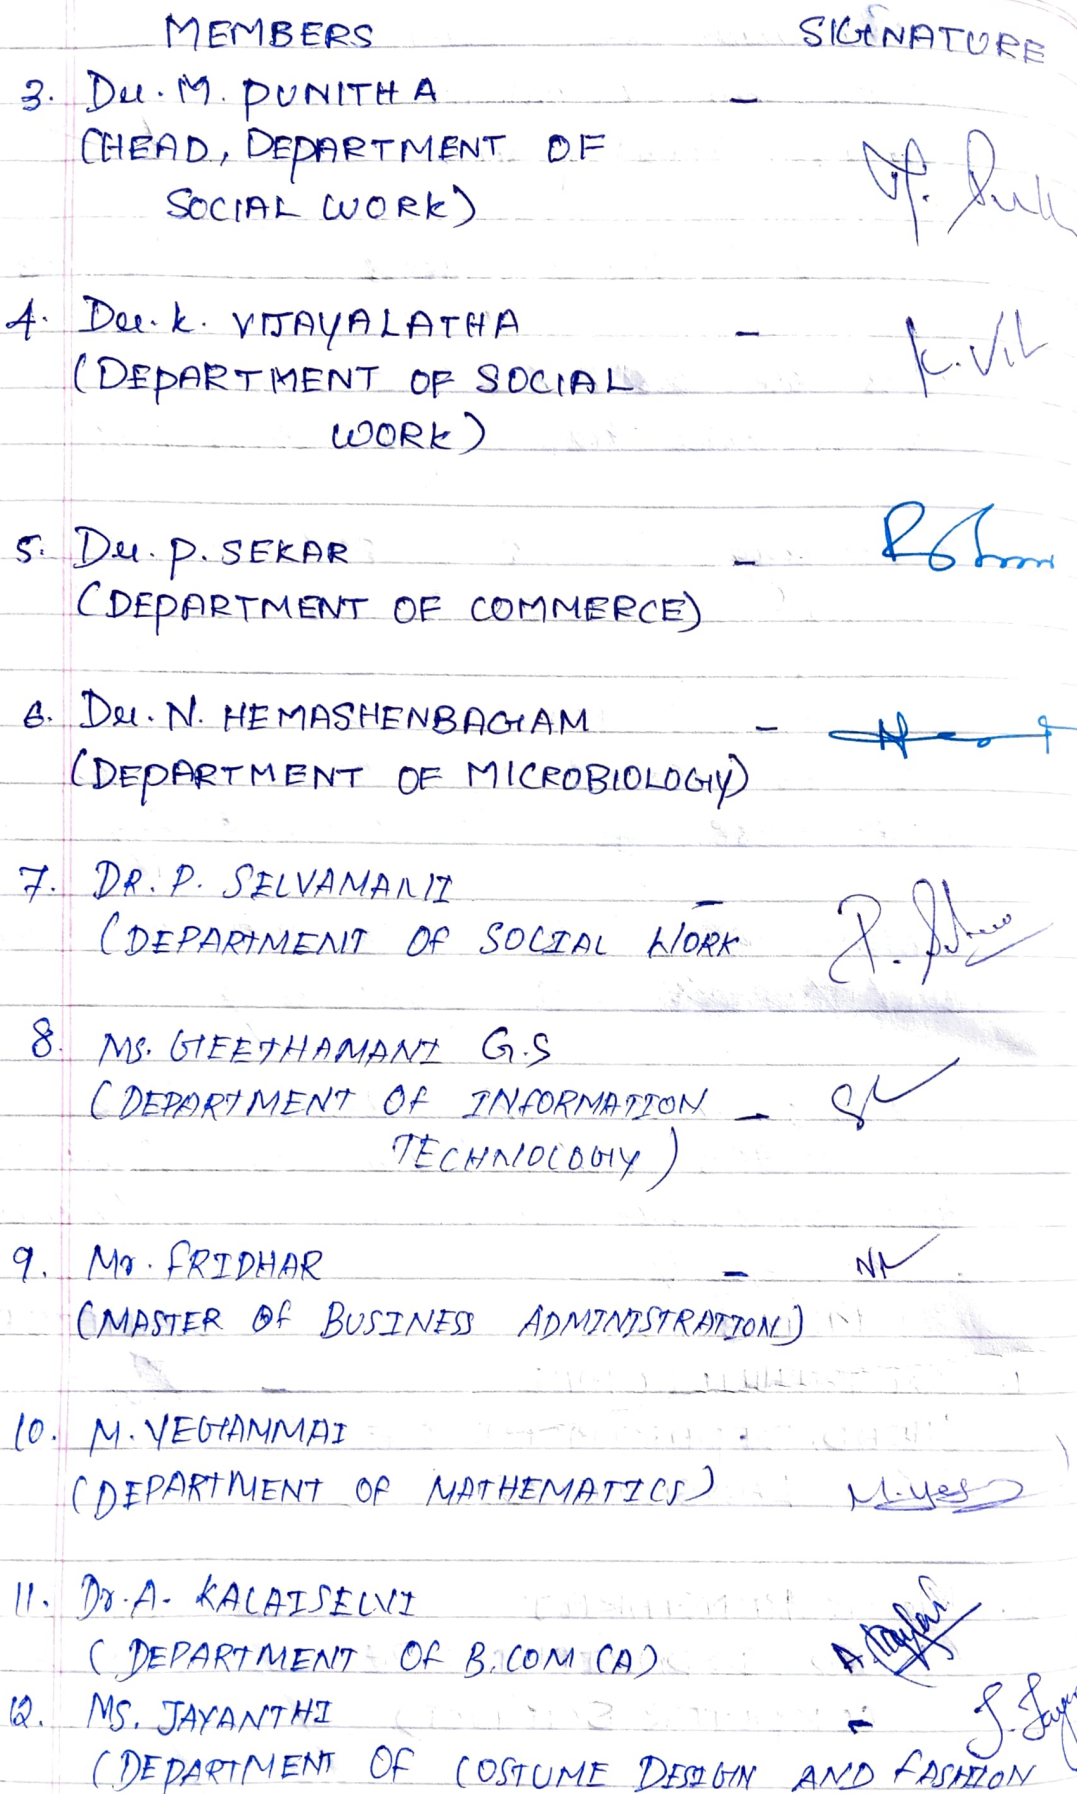 MEMBERS SIGNATURE
3. Dr. M. PUNITHA -
(HEAD, DEPARTMENT OF
SOCIAL WORK)
4. Dr. K. VIJAYALATHA - K. Vil
(DEPARTMENT OF SOCIAL
WORK)
5. Dr. P. SEKAR -
(DEPARTMENT OF COMMERCE)
6. Dr. N. HEMASHENBAGAM -
(DEPARTMENT OF MICROBIOLOGY)
7. DR. P. SELVAMANI -
(DEPARTMENT OF SOCIAL WORK
8. MS. GEETHAMANI G.S
(DEPARTMENT OF INFORMATION -
TECHNOLOGY)
9. Mr. SRIDHAR -
(MASTER OF BUSINESS ADMINISTRATION)
10. M. YEGAMMAI
(DEPARTMENT OF MATHEMATICS) M. yes
11. Dr. A. KALAISELVI
(DEPARTMENT OF B.COM (A)
12. MS. JAYANTHI -
(DEPARTMENT OF COSTUME DESIGN AND FASHION